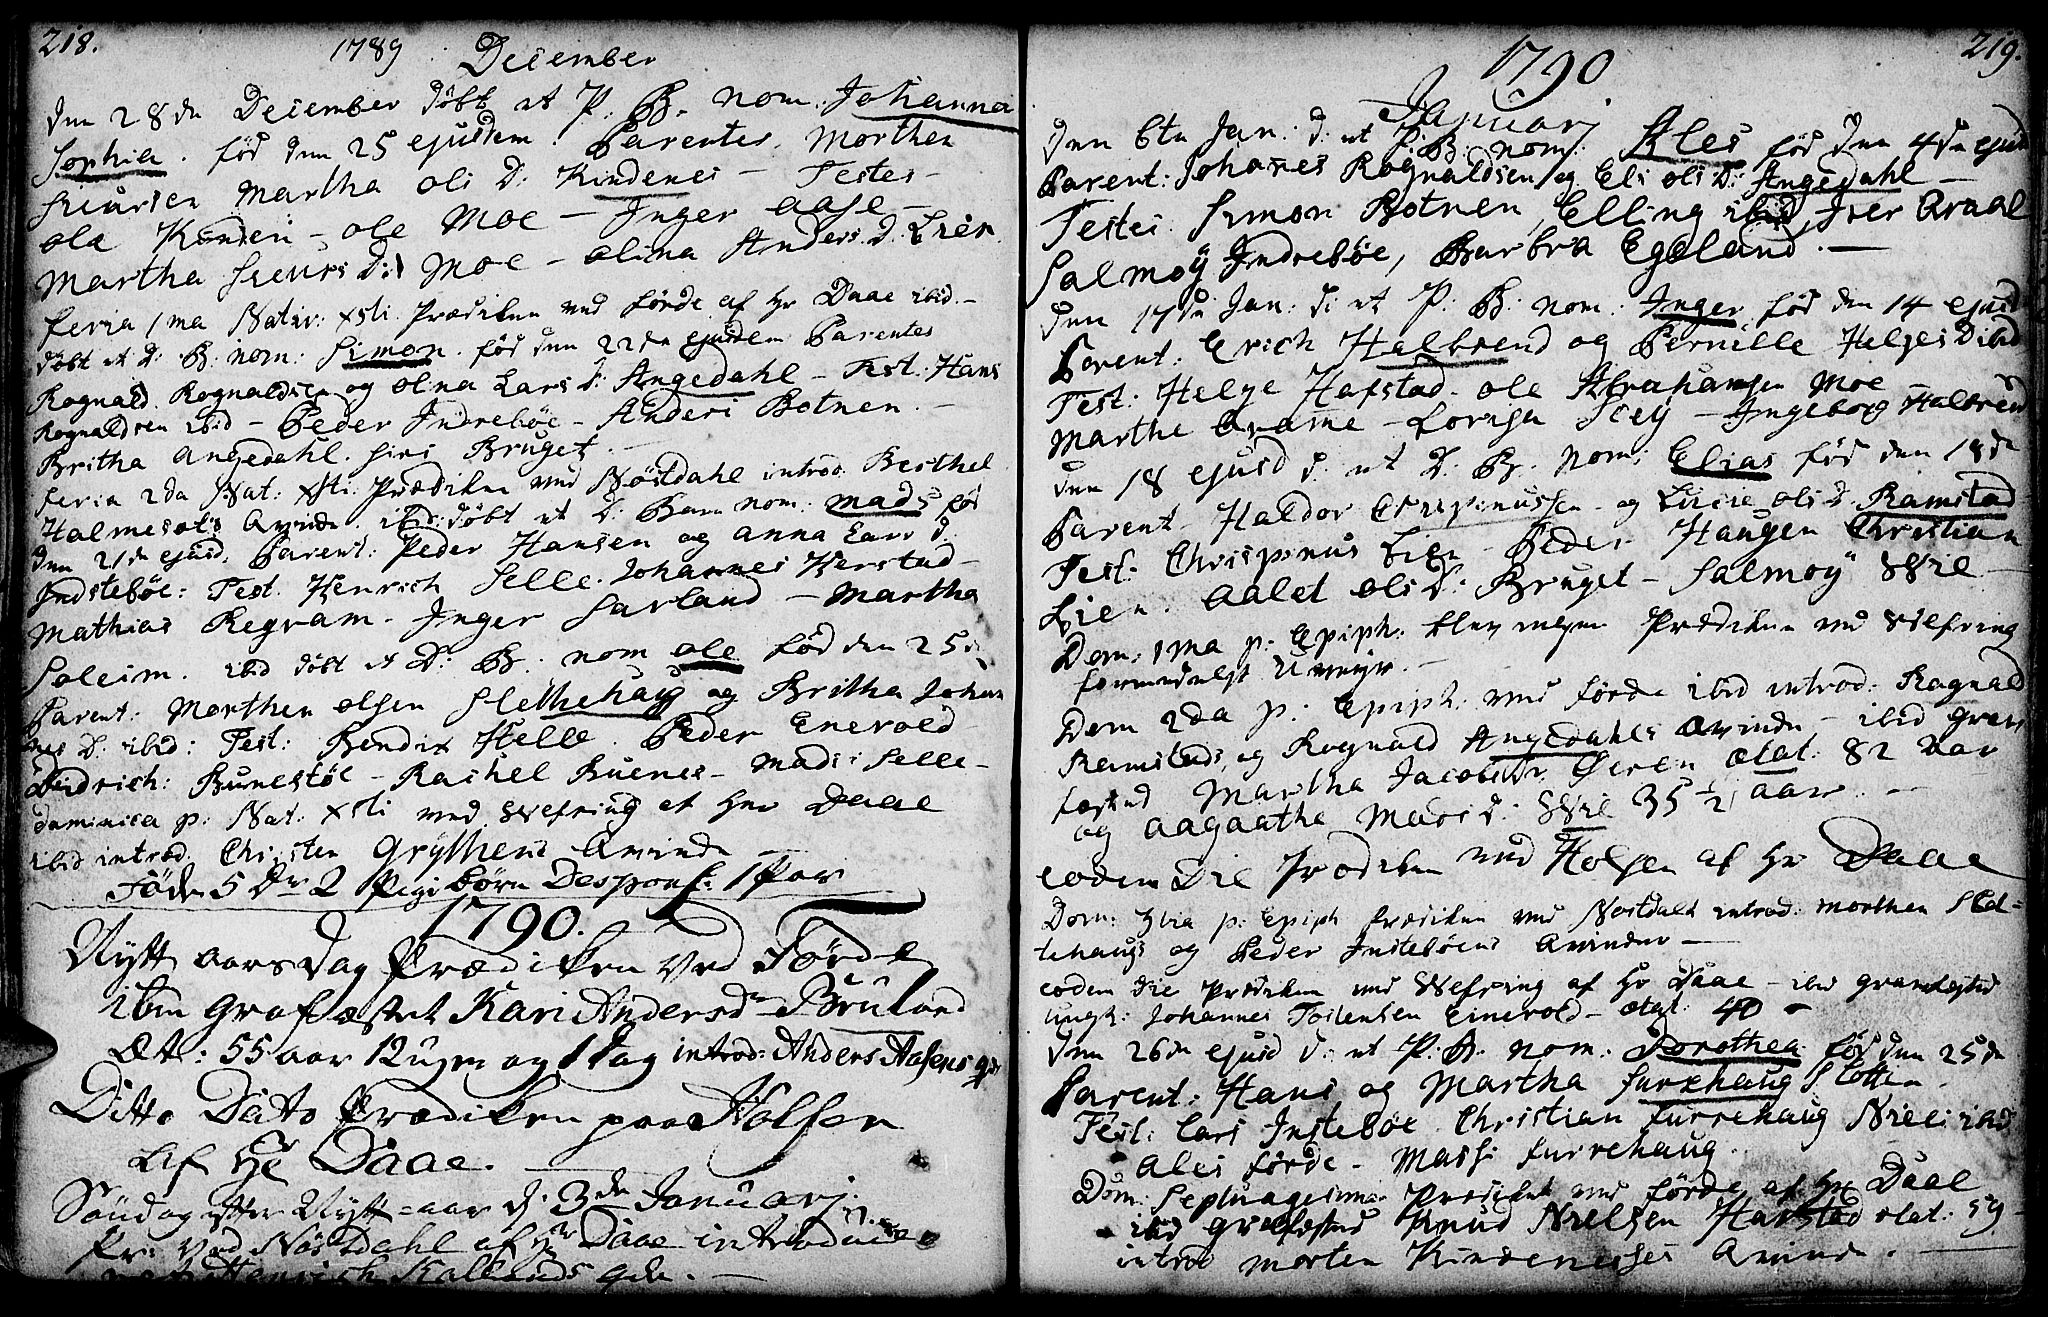 218.
1789 December
den 28de December döbt et P. B. nom. Johanna
Sophia. föd den 25 ejusdem. Parentes. Morthen
Siursen Martha ols D: Kindenes - Testes -
ola Kinden - ole Moe - Inger Aase -
Martha Siurs D: Moe - olina Anders D. Lien.
feria 1ma Nativ: Xsti. Prædiken ved förde af Hr Daae ibid. -
döbt et D: B: nom: Simon. föd den 22de ejusdem Parentes
Rognald Rognaldsen og olina Lars D: Angedahl - Test: Hans
Rognaldsen ibid - Peder Indreböe - Anders Botnen. -
Britha Angedahl. Siri Bruget. -
feria 2da Nat: Xsti: Prædiken ved Nöstdahl introd. Berthel
Halmesets qvinde. ibid: döbt et D: Barn nom: Mads föd
den 21de ejusd. Parent: Peder Hansen og Anna Lars D.
Indsteböe: Test. Henrich Selle. Johannes Herstad -
Mathias Regram. Inger Sarland - Martha
Soleim. ibid döbt et D: B: nom ole föd den 25de
Parent: Morthen olsen Slettehaug og Britha Johan
nes D. ibid: Test: Bendix Helle. Peder Enevold
Didrich: Bunestöl - Rachel Buenes - Mads Selle -
dominica p: Nat: Xsti ved Wefring af Her Daae
ibid introd. Christen Gryttens qvinde
Föde 5 Dr 2 Pigebörn Despons: 1 Par
1790.
Nytt aars Dag Prædiken ved Förde
ibm Grafæstet Kari Andersd Bruland
Æt: 55 aar 12 uger og 1 Dag introd: Anders Aasens qde
Ditto Dato Prædiken paa Holsen
af Hr Daae.
Söndag efter Nytt-aar d: 3de Januarj.
Pr: ved Nöstdahl af Hr Daae introd
Henrich Kallands qde. -
219.
1790
Januarj
den 6te Jan: d: et P: B: nom: Ales föd den 4de ejusd
Parent: Johanes Rognaldsen og Eli ols D: Angedahl -
Testes Simon Botnen, Elling ibid, Iver Qvaal
Salmoÿ Indreböe, Barbra Egeland. -
den 17de Jan: d: et P: B: nom: Inger föd den 14 ejusd
Parent: Erich Halbrend og Pernille Helges D ibid
Test: Helge Hafstad. ole Abrahamsen Moe
Marthe Qvame - Lornsa Sleÿ - Ingeborg Halbrend
den 18 ejusd d: et D: B: nom: Elias föd den 18de
Parent - Haldor Chrispinussen - og Lucie ols D. Ramstad
Test: Chrispinus Lien - Peder Haugen Christian
Lien. Aalet ols D: Bruget - Salmoÿ Wie -
Dom: 1ma p: Epiph: blev ingen Prædiken ved Wefring
formedelst Uveyr. -
Dom 2da p: Epiph: ved förde ibid introd: Ragnald
Ramstads, og Rognald Angedahls qvinder - ibid grav
fæsted Martha Jacobsdr Öeren ætat: 82 aar
og Aagaathe Mads D: Wie 35 1/2 aar. -
eodem Die Prædiken ved Holsen af Hr Daae
Dom: 3tia p: Epiph Prædiken ved Nöstdahl introd: Morthen Slet=
tehaugs og Peder Insteböens qvinder -
eodem die Prædiken ved Wefring af Hr Daae - ibid gravfæsted
ungk: Johannes Torstensen Einevold - ætat: 40 -
den 26de ejusd d: et P: B: nom: Dorothea föd den 25de
Parent: Hans og Martha Furrehaug Slotten.
Test: Lars Insteböe. Christian Furrehaug Niels ibid
Ales förde - Massi Furrehaug.
Dom: Septuagesima Prædiket ved förde af Hr Daae
ibid gravfæsted Knud Nielsen Hafstad ætat: 59 -
introd Morten Kindenesses qvinde. -